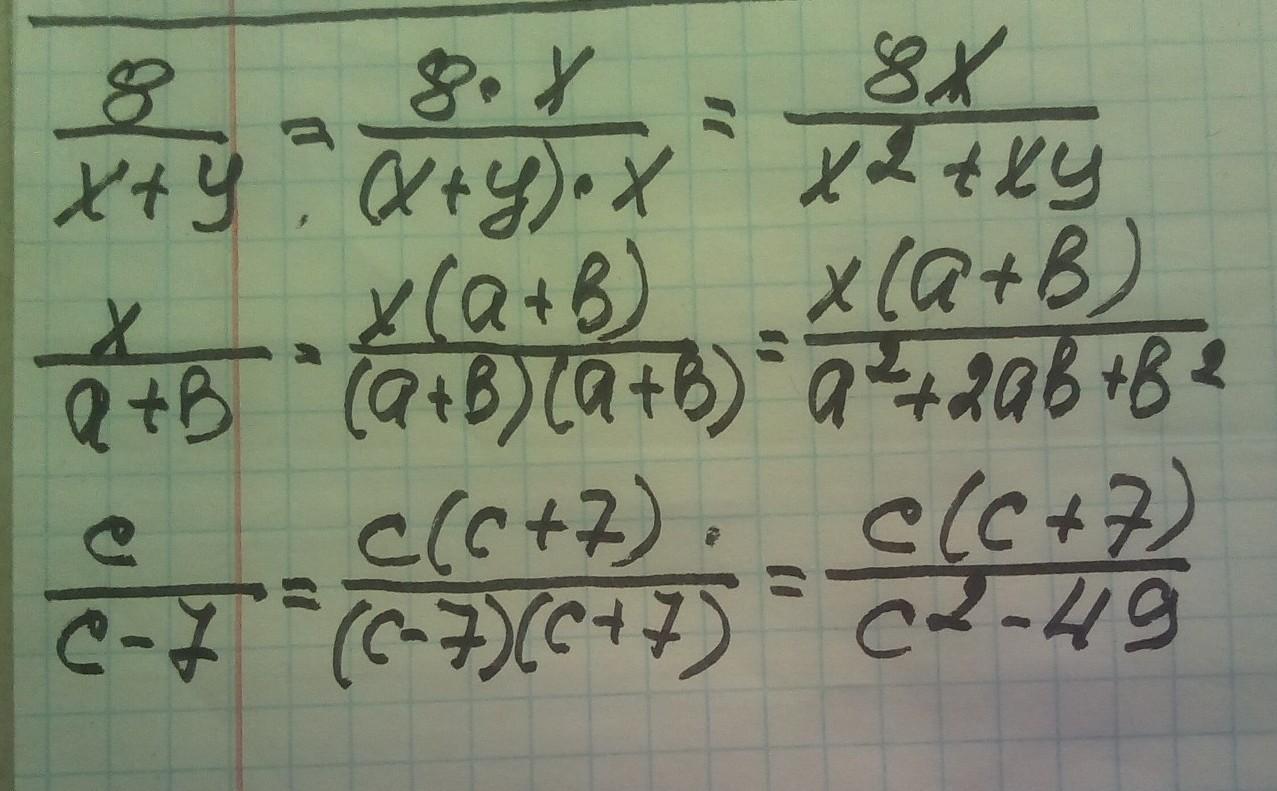 8/(x+y) = (8·x)/((x+y)·x) = 8x/(x²+xy)
x/(a+b) = x(a+b)/((a+b)(a+b)) = x(a+b)/(a²+2ab+b²)
c/(c-7) = c(c+7)/((c-7)(c+7)) = c(c+7)/(c²-49)